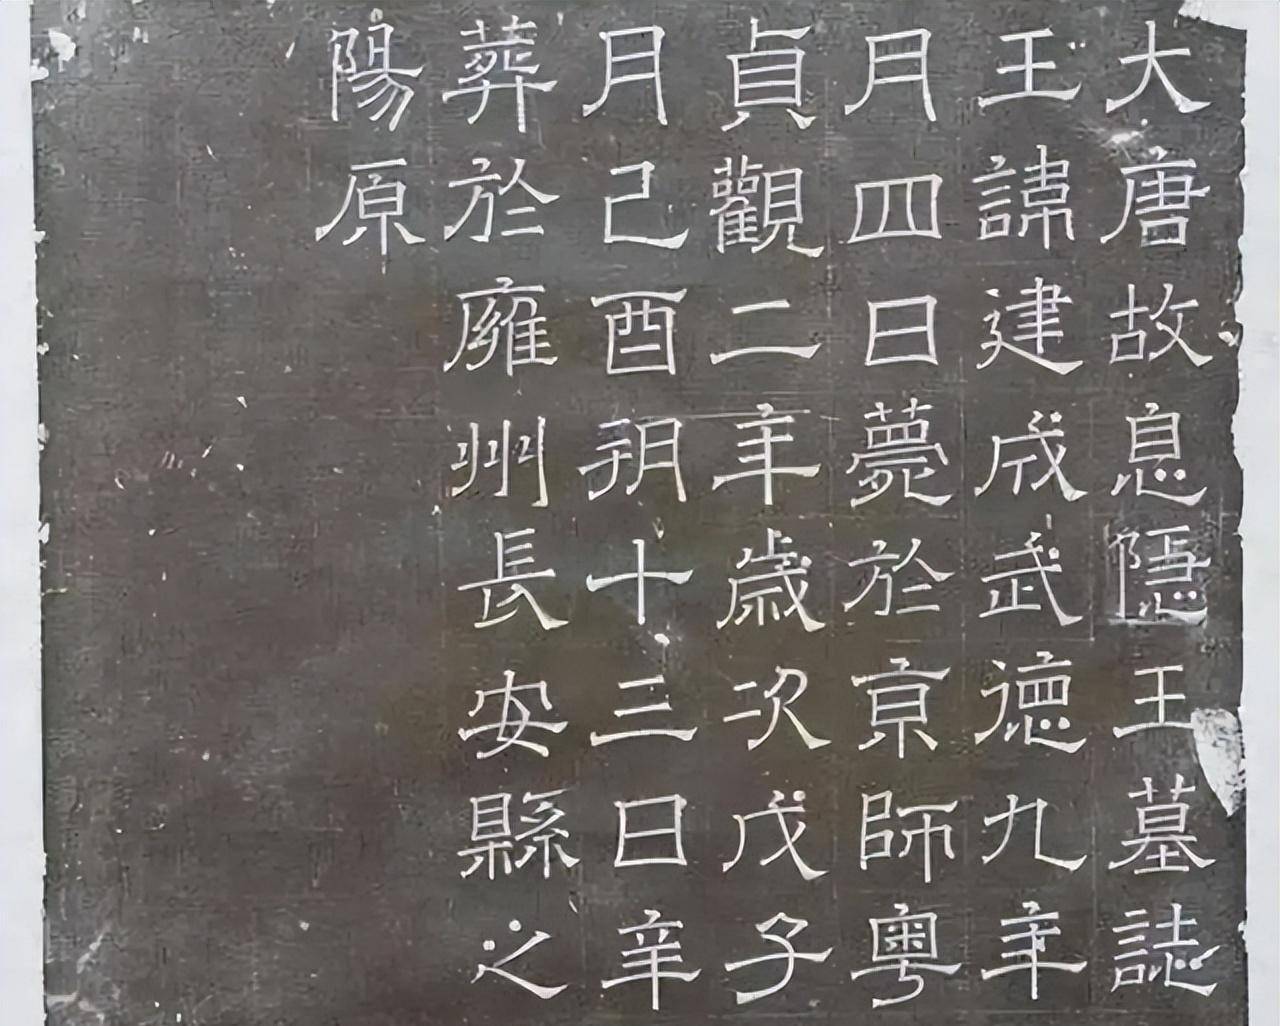 大唐故息隱王墓誌
王諱建成武德九年
月四日薨於亰師粵
貞觀二年歲次戊子
月己酉朔十三日辛
葬於雍州長安縣之
陽原